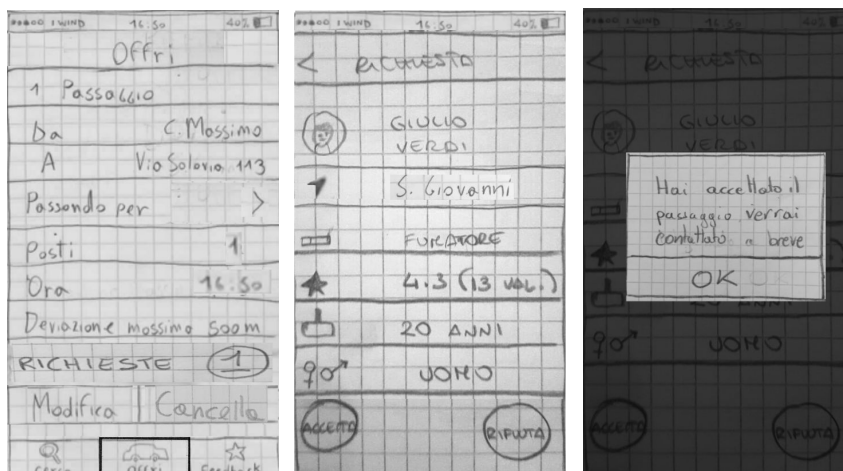 I WIND 16:50 40%
Offri
1 Passaggio
Da C. Massimo
A Via Salaria 113
Passando per >
Posti 1
Ora 16:50
Deviazione massima 500m
RICHIESTE 1
Modifica Cancella
Cerca Offri Feedback
I WIND 16:50 40%
< RICHIESTA
GIULIO
VERDI
S. Giovanni
FUMATORE
4.3 (13 VAL.)
20 ANNI
UOMO
ACCETTA RIFIUTA
I WIND 16:50 40%
< RICHIESTA
GIULIO
VERDI
Hai accettato il
passaggio verrai
contattato a breve
OK
20 ANNI
UOMO
ACCETTA RIFIUTA